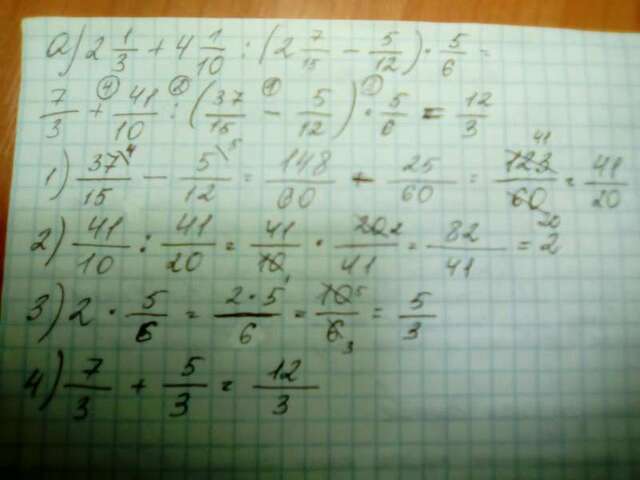 a) 2 1/3 + 4 1/10 : (2 7/15 - 5/12) · 5/6 =
7/3 + 41/10 : (37/15 - 5/12) · 5/6 = 12/3
1) 37/15 - 5/12 = 148/60 - 25/60 = 123/60 = 41/20
2) 41/10 : 41/20 = 41/10 · 20/41 = 82/41 = 2
3) 2 · 5/6 = 2·5/6 = 10/6 = 5/3
4) 7/3 + 5/3 = 12/3